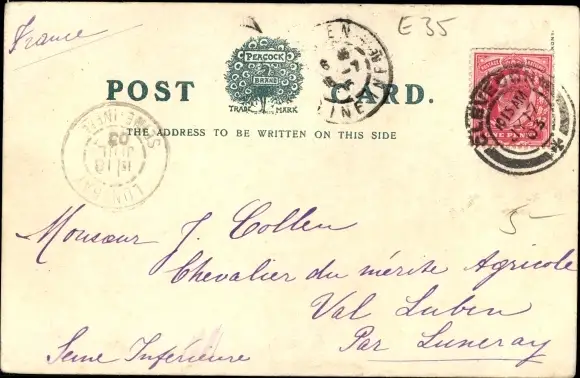 France
E35
PEACOCK
BRAND
TRADE MARK
POST CARD.
THE ADDRESS TO BE WRITTEN ON THIS SIDE
5-
Monsieur J. Collen
Chevalier du mérite Agricole
Val Lubin
Par Luneray
Seine Inférieure